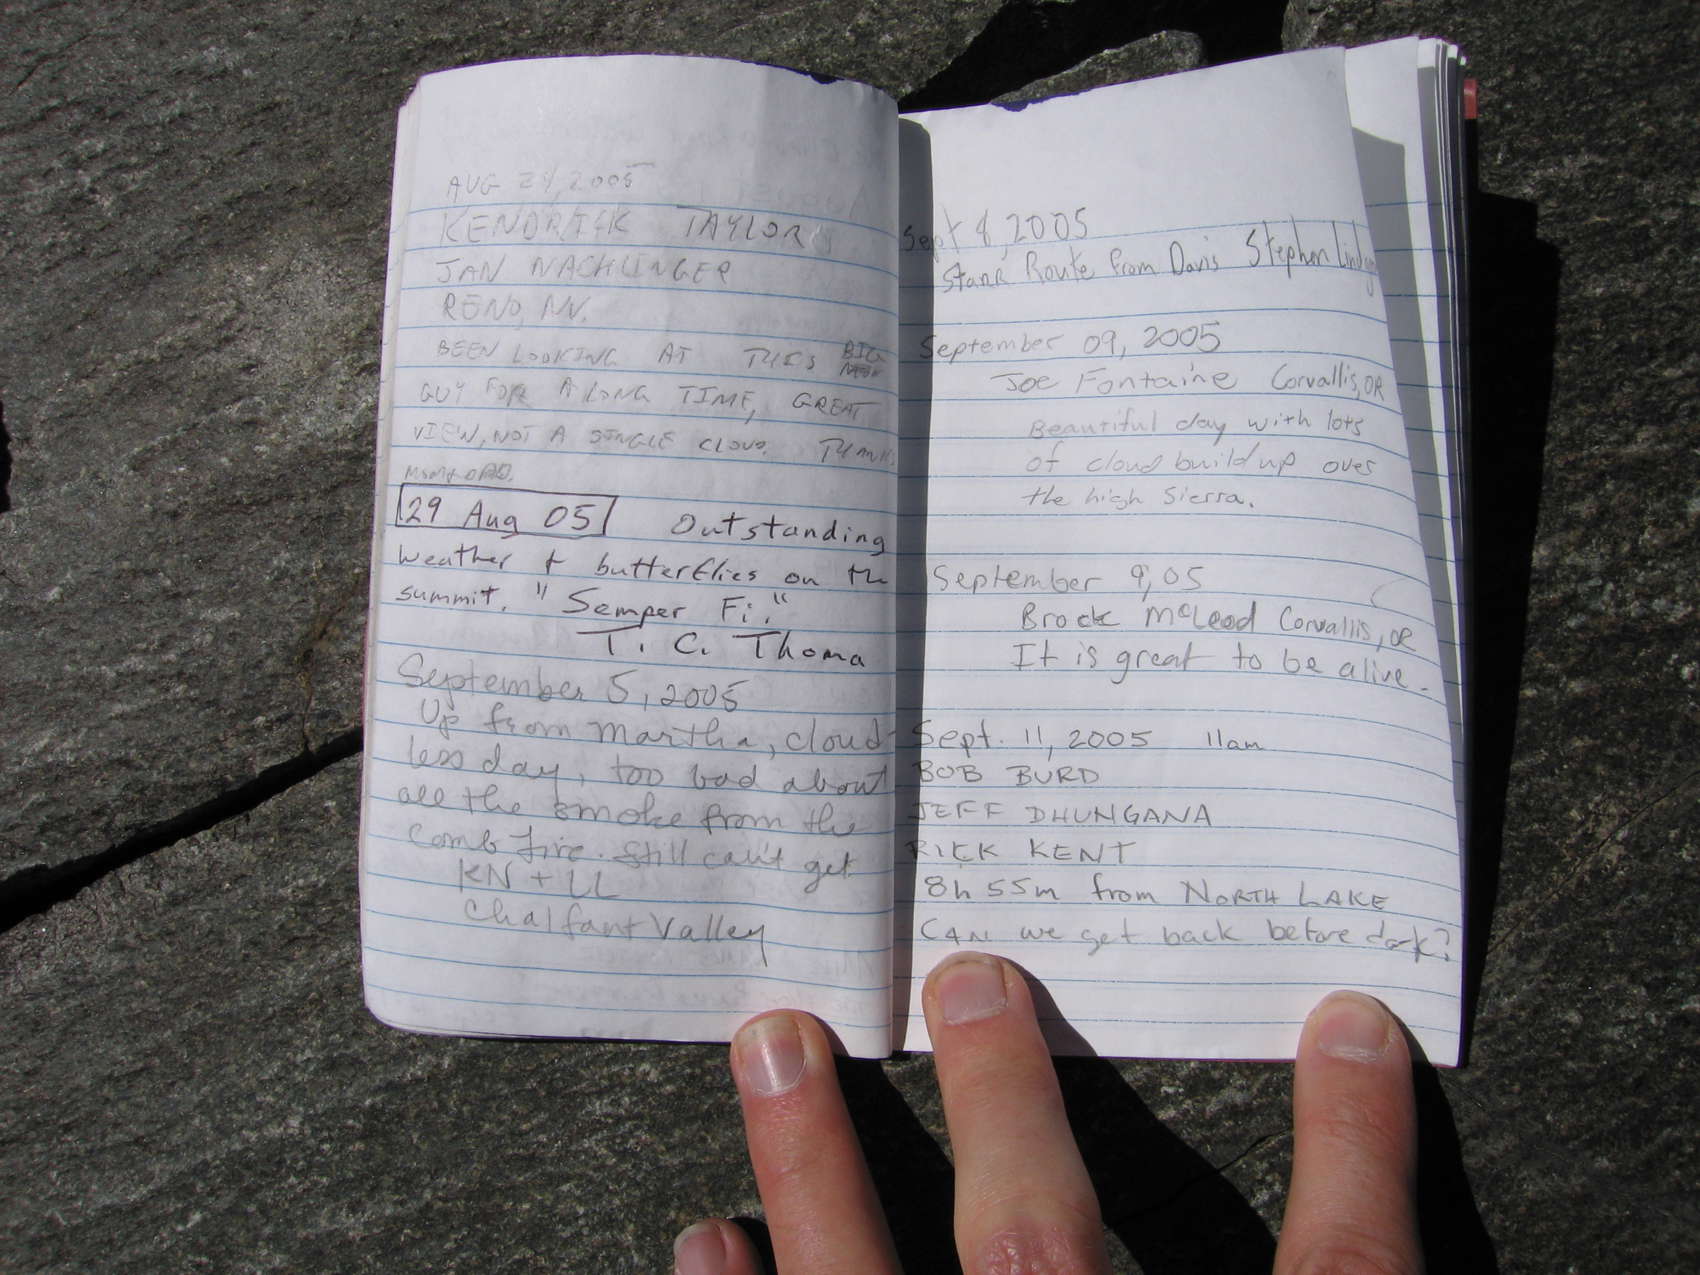 AUG 29, 2005
KENDRICK TAYLOR
JAN NACHLINGER
RENO, NV.
BEEN LOOKING AT THIS BIG
GUY FOR A LONG TIME, GREAT
VIEW, NOT A SINGLE CLOUD. THANKS
29 Aug 05 Outstanding
weather + butterflies on the
summit. "Semper Fi."
T. C. Thoma
September 5, 2005
Up from Martha, cloud-
less day, too bad about
all the smoke from the
Comb fire. Still can't get
KN + LL
Chalfant Valley
Sept 8, 2005
Route from Davis Stephen
September 09, 2005
Joe Fontaine Corvallis, OR
Beautiful day with lots
of cloud build up over
the high Sierra.
September 9, 05
Brock McLeod Corvallis, OR
It is great to be alive.
Sept. 11, 2005 11am
BOB BURD
JEFF DHUNGANA
RICK KENT
8h 55m from NORTH LAKE
CAN we get back before dark?